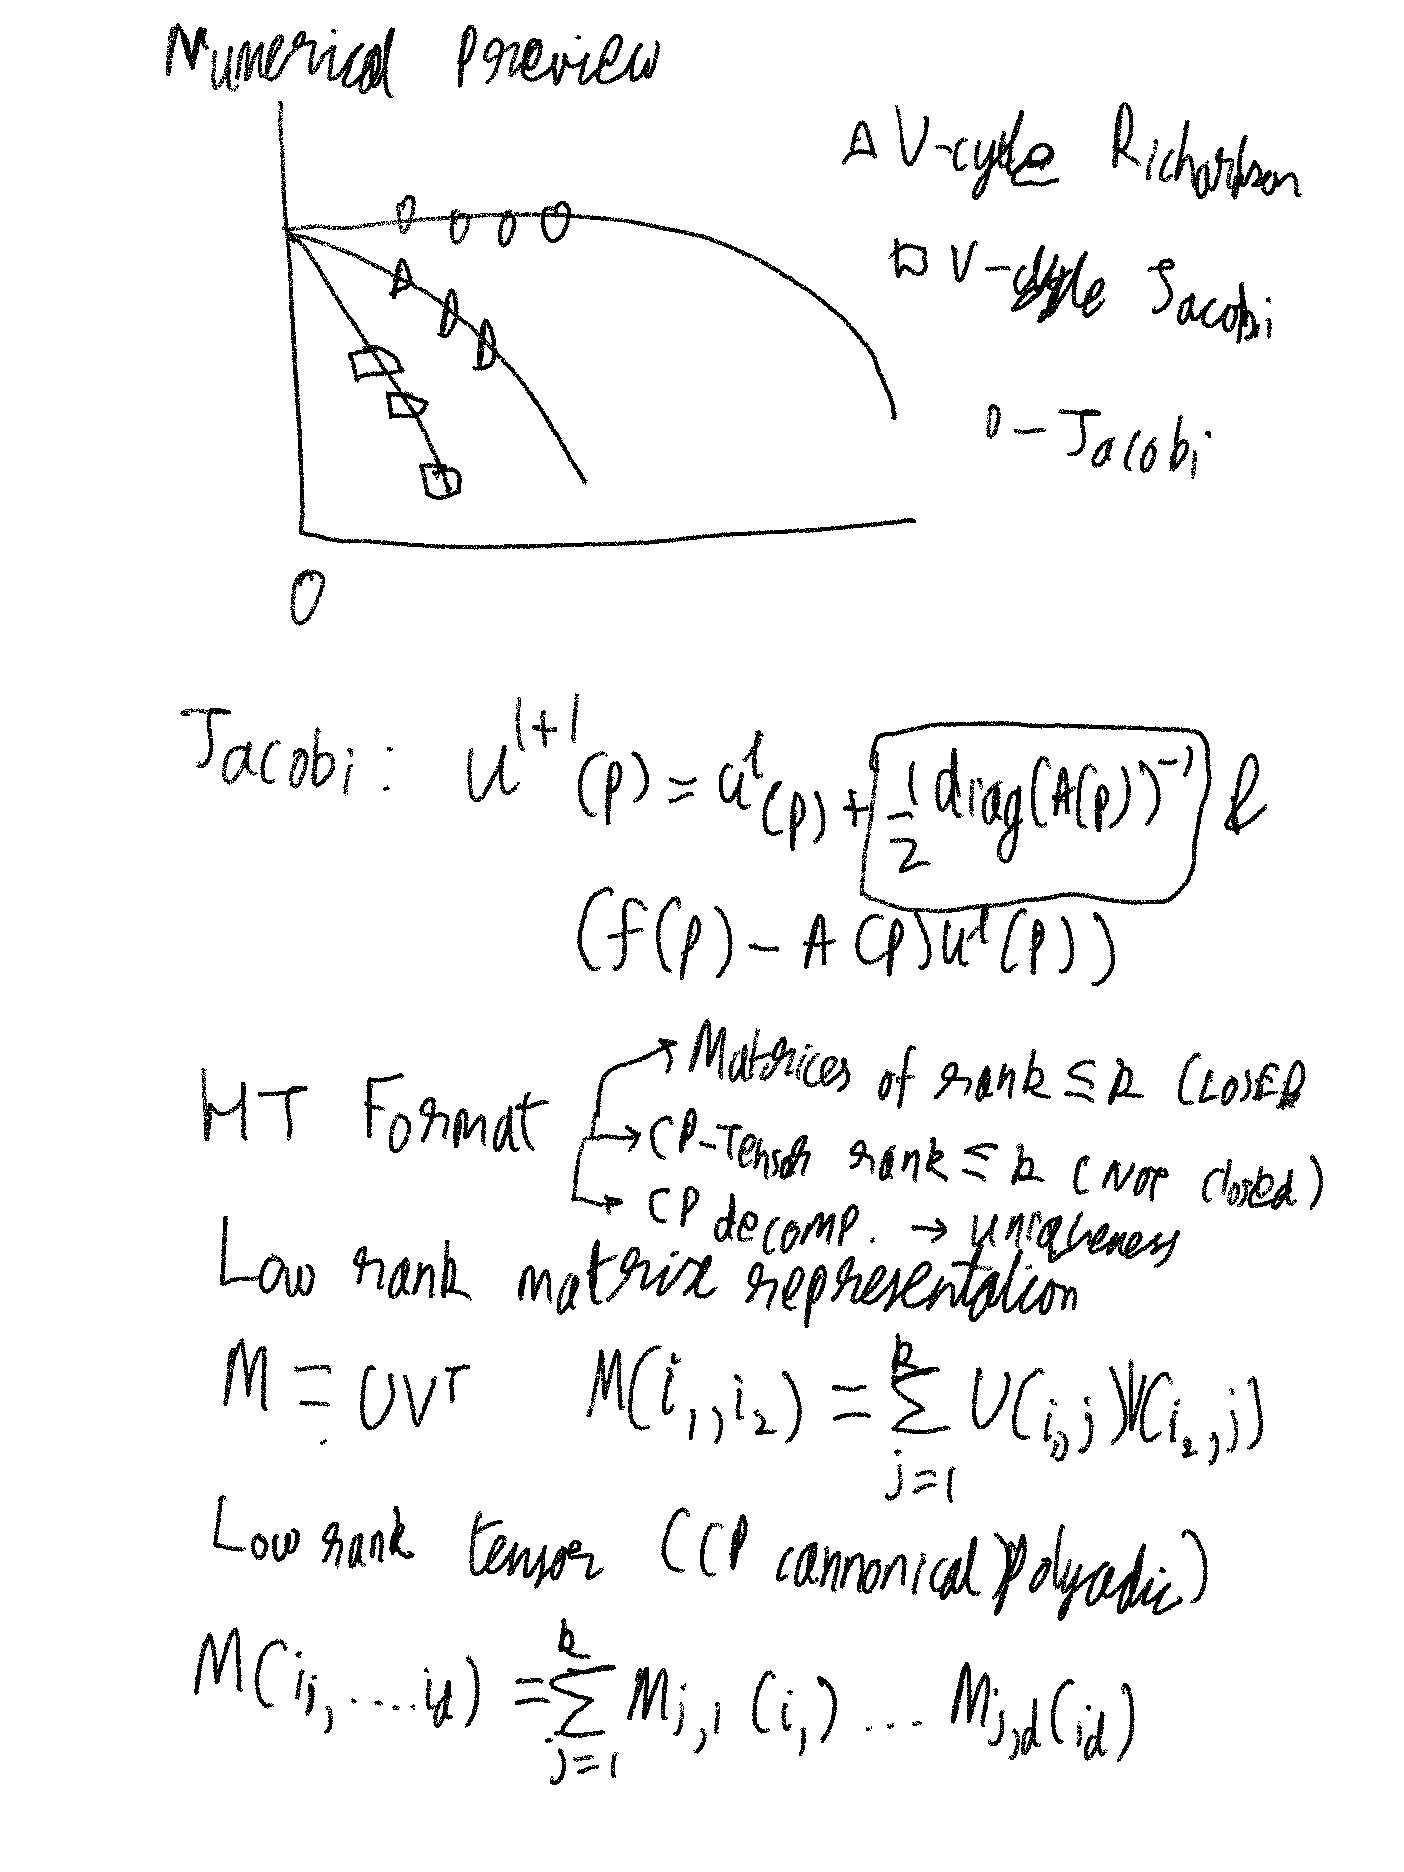 Numerical Preview
△ V-cycle Richardson
□ V-cycle Jacobi
0 - Jacobi
0
Jacobi: u^{l+1}(p) = u^l(p) + 1/2 diag(A(p))^{-1}
(f(p) - A(p)u^l(p))
HT Format → Matrices of rank ≤ k CLOSED
→ CP-Tensor rank ≤ k (Not closed)
→ CP decomp. → uniqueness
Low rank matrix representation
M = UV^T M(i_1, i_2) = \sum_{j=1}^{k} U(i_1, j)V(i_2, j)
Low rank tensor (CP cannonical Polyadic)
M(i_1, ....i_d) = \sum_{j=1}^{k} M_{j,1}(i_1) ... M_{j,d}(i_d)